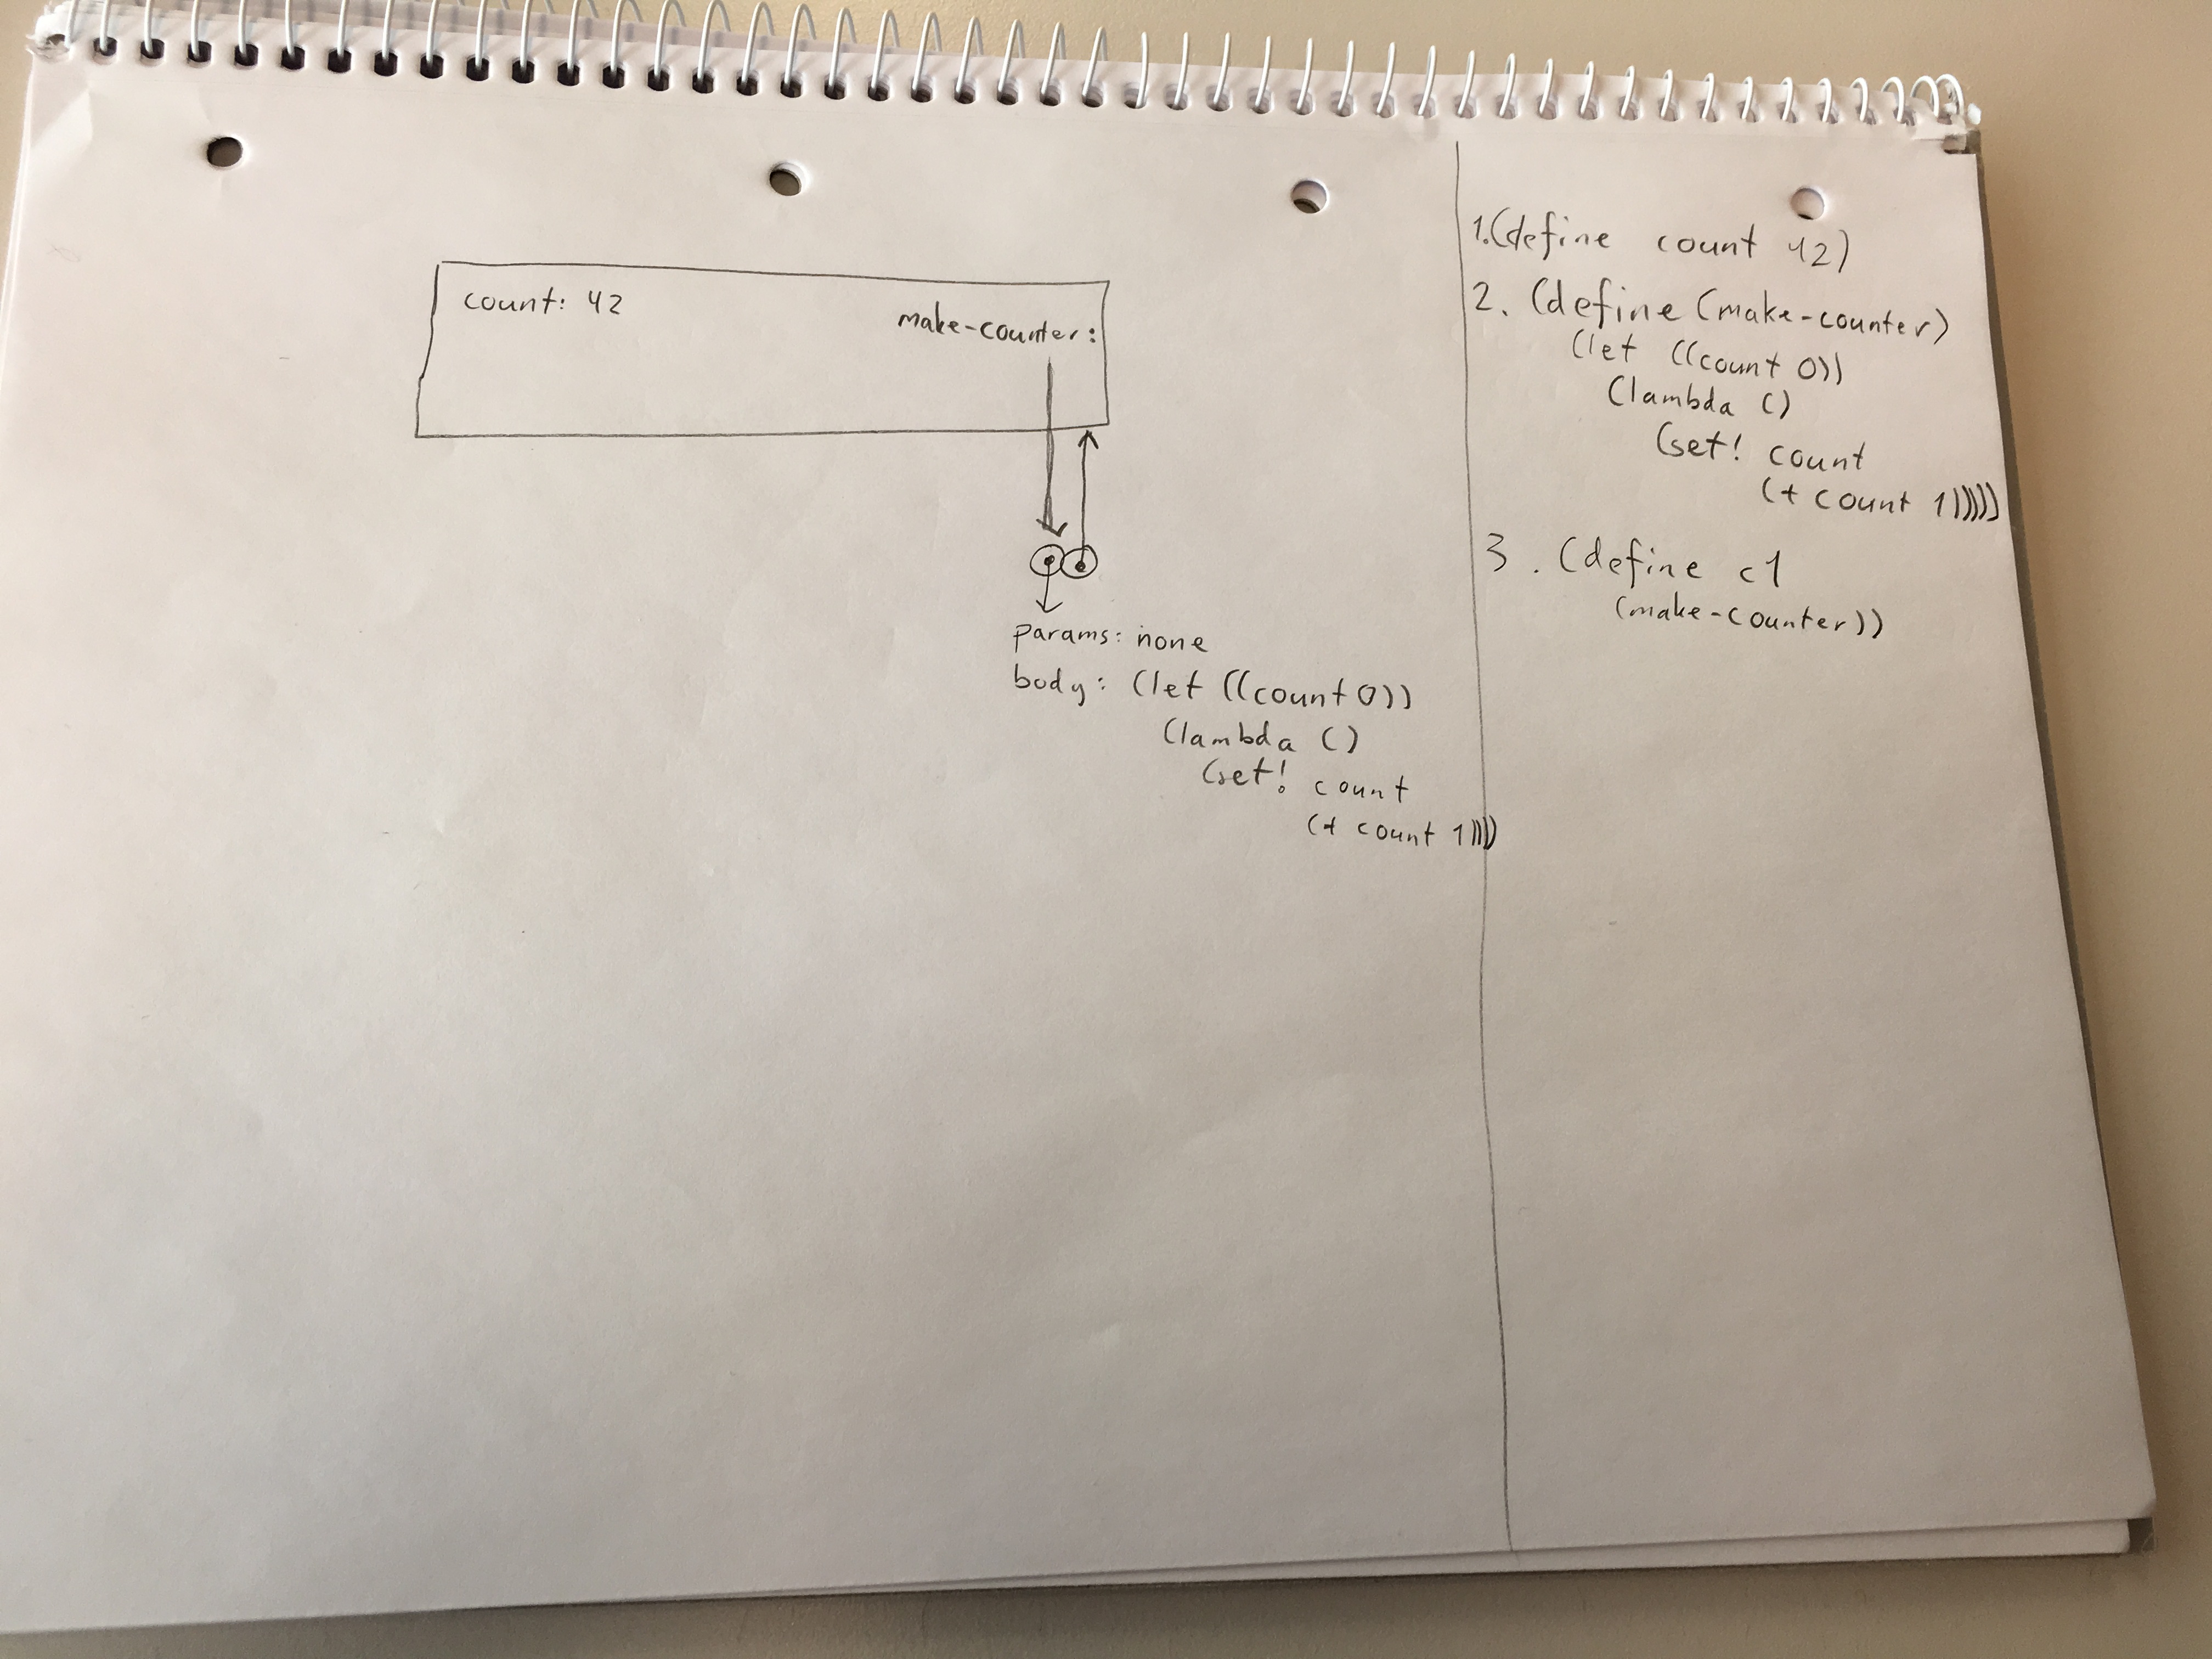 count: 42
make-counter:
params: none
body: (let ((count 0))
(lambda ()
(set! count
(+ count 1))))
1.(define count 42)
2. (define (make-counter)
(let ((count 0))
(lambda ()
(set! count
(+ count 1)))))
3. (define c1
(make-counter))